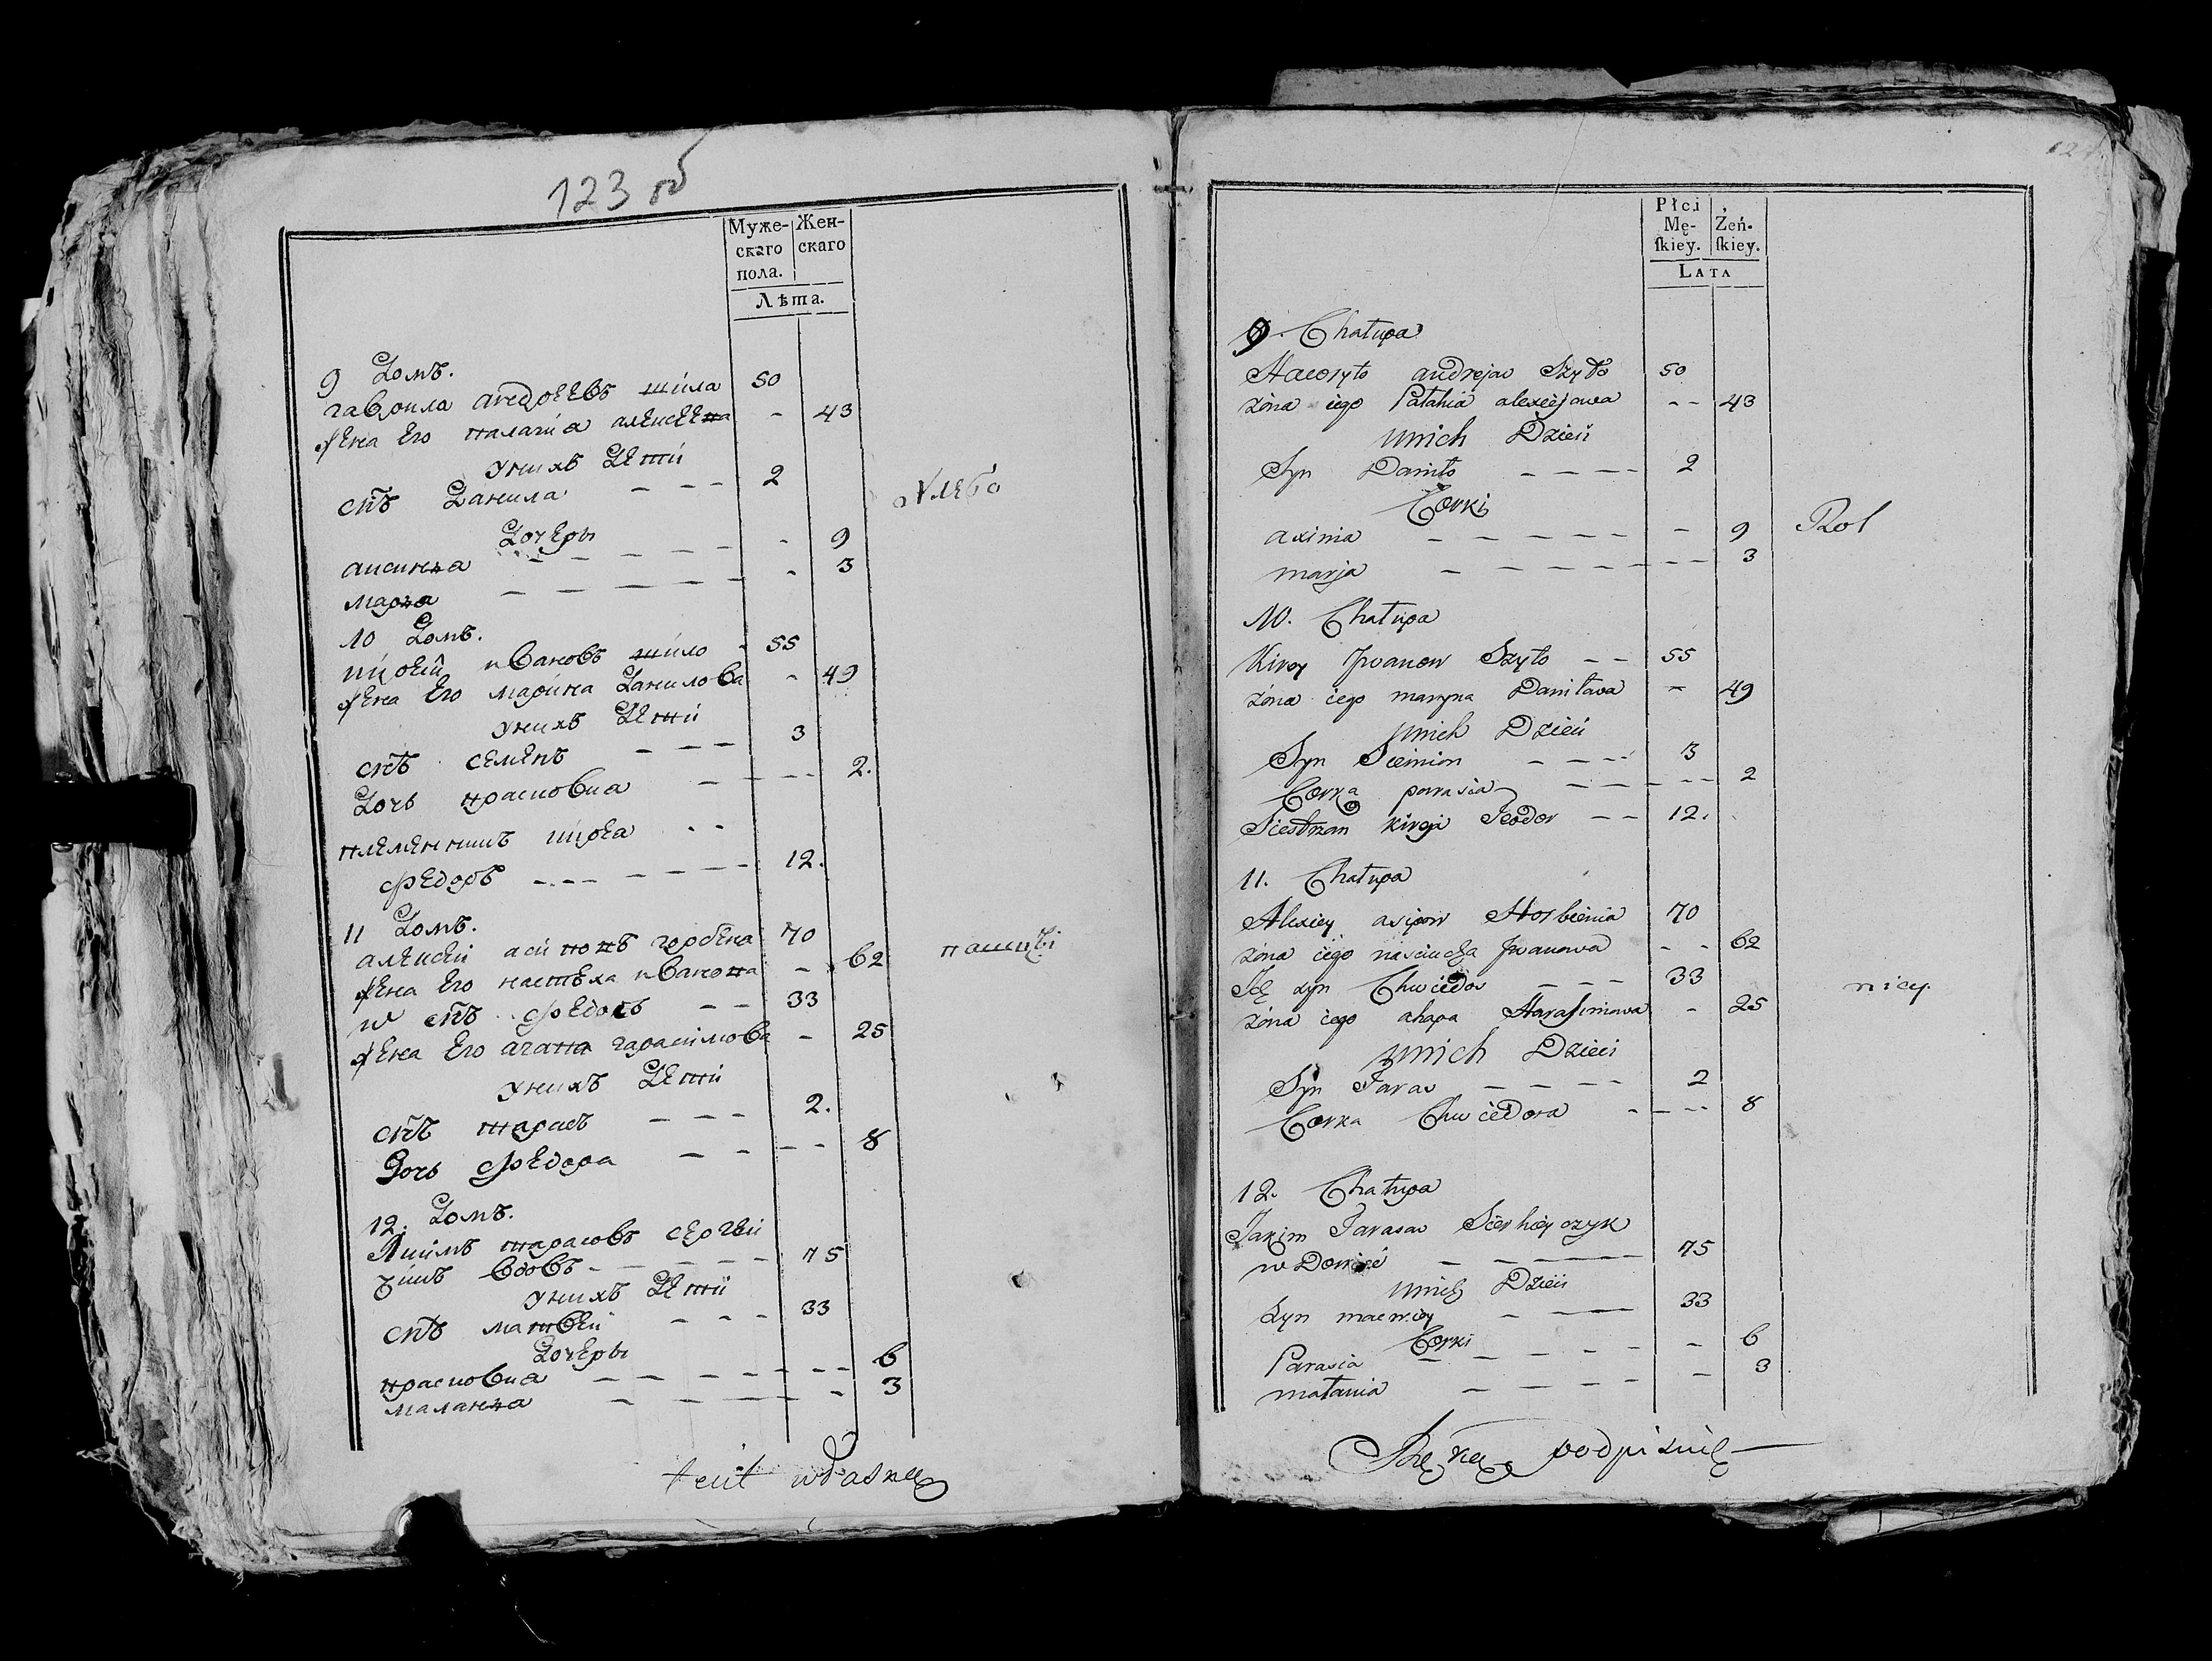 123 об
Муже-
скаго
пола.
Жен-
скаго
Лѣта.
9 Домъ.
гаврила андрѣевъ шила 50
жена его палагиа алексеева - 43
уних детй
снъ Данила - - - 2
Дочери
аксиниа - - - - - 9
мариа - - - - - 3
Хлебо
10 Домъ.
кирей ивановъ шило - 55
жена его марина данилова - 49
унихъ детй
снъ семенъ - - - 3
Дочъ прасковиа - - - - 2.
племенникъ кирея - -
федоръ - - - - - - 12.
11 Домъ.
алексей асиповъ горбеня 70
жена его настѣха иванова - 62
и снъ федосъ - - 33
жена его агапа гарасимова - 25
унихъ детй
снъ тарасъ - - - 2.
Дочъ федора - - - - 8
пашцы
12. Домъ.
Якимъ тарасовъ сергей
чикъ вдовъ - - - - - 75
унихъ детй
снъ матвей - - - 33
Дочери
прасковиа - - - - - - - 6
маланиа - - - - - - 3
teiż własną
124.
Płci
Mę-
ſkiey.
Żeń-
ſkiey.
LATA
9. Chałupa
Hawryło andrejaw Szyło 50
żona iego Pałahia alexiejowa - - 43
unich Dzieci
Syn Daniło - - - - 2
Corki
axinia - - - - - - 9
marja - - - - - - - - 3
Rol
10. Chałupa
Kirey Jwanow Szyło - - 55
żona iego maryna Daniława - 49
unich Dzieci
Syn Siemion - - - - 3
Corka parasia - - - - - - 2
Siestrzan kireja Feodor - - 12.
11. Chałupa
Alexiey asipow Horbienia 70
żona iego nasciucha Jwanowa - - 62
Ich syn Chwiedos - - - 33
żona iego ahapa Harasimowa - 25
unich Dzieci
Syn Taras - - - - 2
Corka Chwiedora - - - - 8
nicy.
12. Chałupa
Jakim Tarasaw Sierhieyczyk
wDowiec - - - - - 75
unich Dzieci
syn maewiey - - - 33
Corki
Parasia - - - - - - 6
małania - - - - - 3
Rękę podpisuię